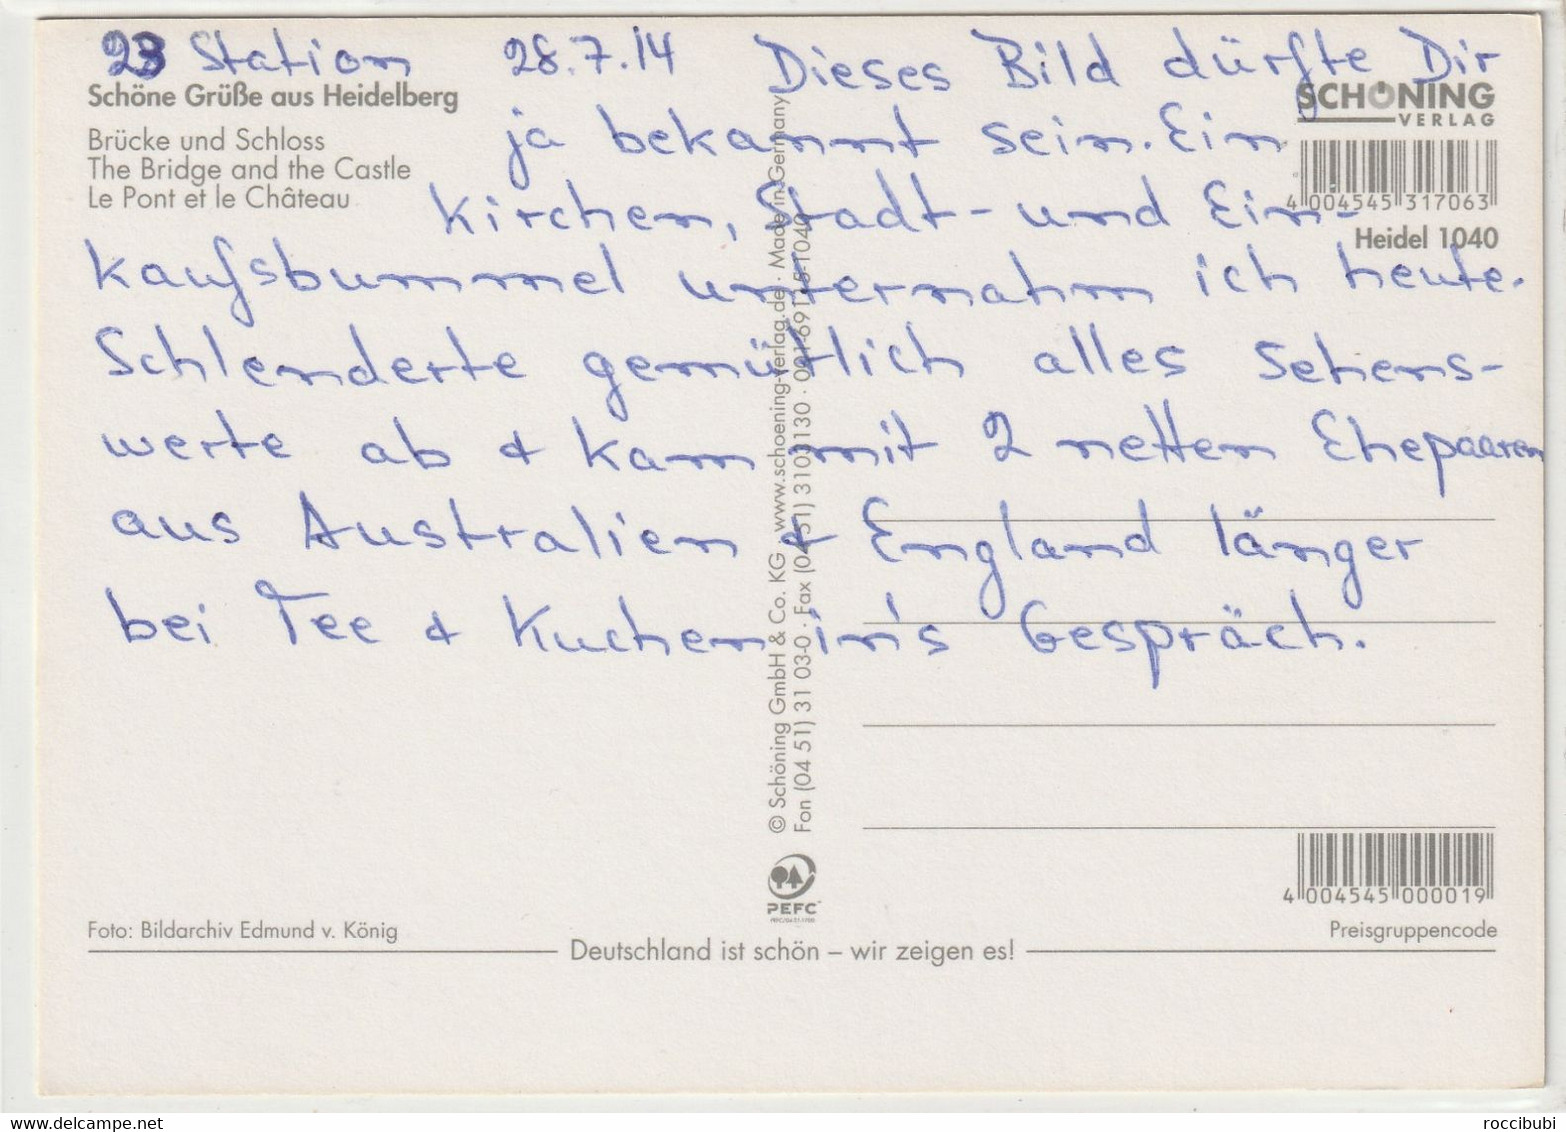 23 Station 28.7.14 Dieses Bild dürfte Dir
Schöne Grüße aus Heidelberg
SCHÖNING
VERLAG
ja bekannt sein. Ein
Brücke und Schloss
The Bridge and the Castle
Le Pont et le Château
4 004545 317063
Kirchen, Stadt- und Ein-
Heidel 1040
kaufsbummel unternahm ich heute.
Schlenderte gemütlich alles Sehens-
werte ab & kam mit 2 netten Ehepaaren
aus Australien & England länger
bei Tee & Kuchen in's Gespräch.
© Schöning GmbH & Co. KG · www.schoening-verlag.de · Made in Germany
Fon (04 51) 31 03-0 · Fax (04 51) 3103130 ·
PEFC
4 004545 000019
Foto: Bildarchiv Edmund v. König
Preisgruppencode
Deutschland ist schön – wir zeigen es!
roccibubi